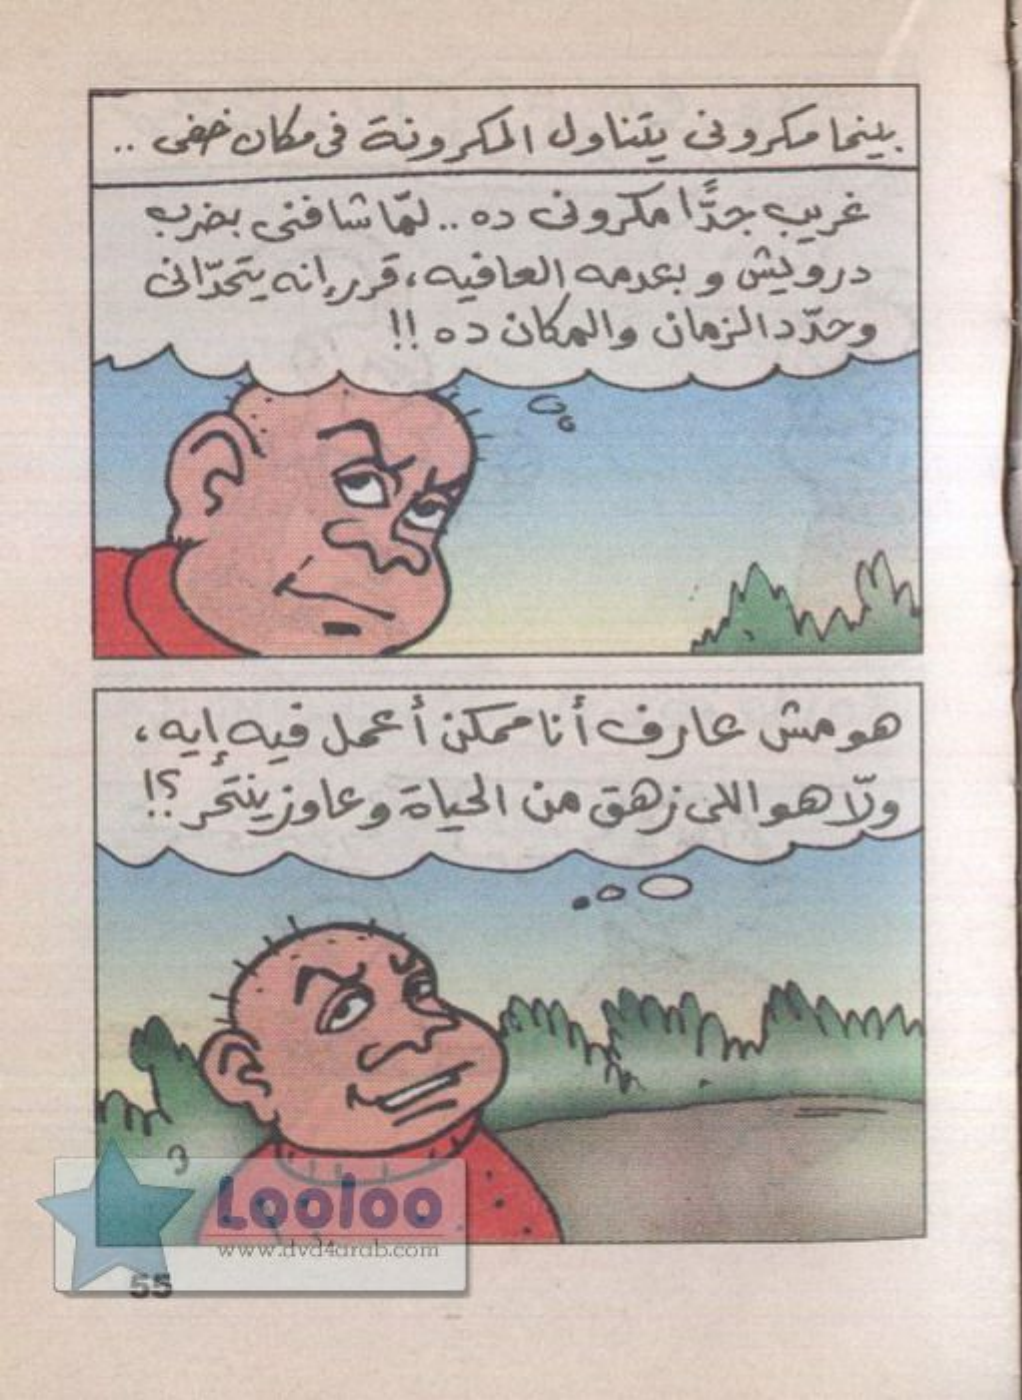 بينما مكرونى يتناول المكرونة فى مكان خفى ..
غريب جدًّا مكرونى ده .. لمّا شافنى بضرب
درويش و بعدمه العافيه، قرر إنه يتحدّانى
وحدّد الزمان والمكان ده !!
هو مش عارف أنا ممكن أعمل فيه إيه،
ولّا هو اللى زهق من الحياة وعاوز ينتحر ؟!
Looloo
www.dvd4arab.com
55